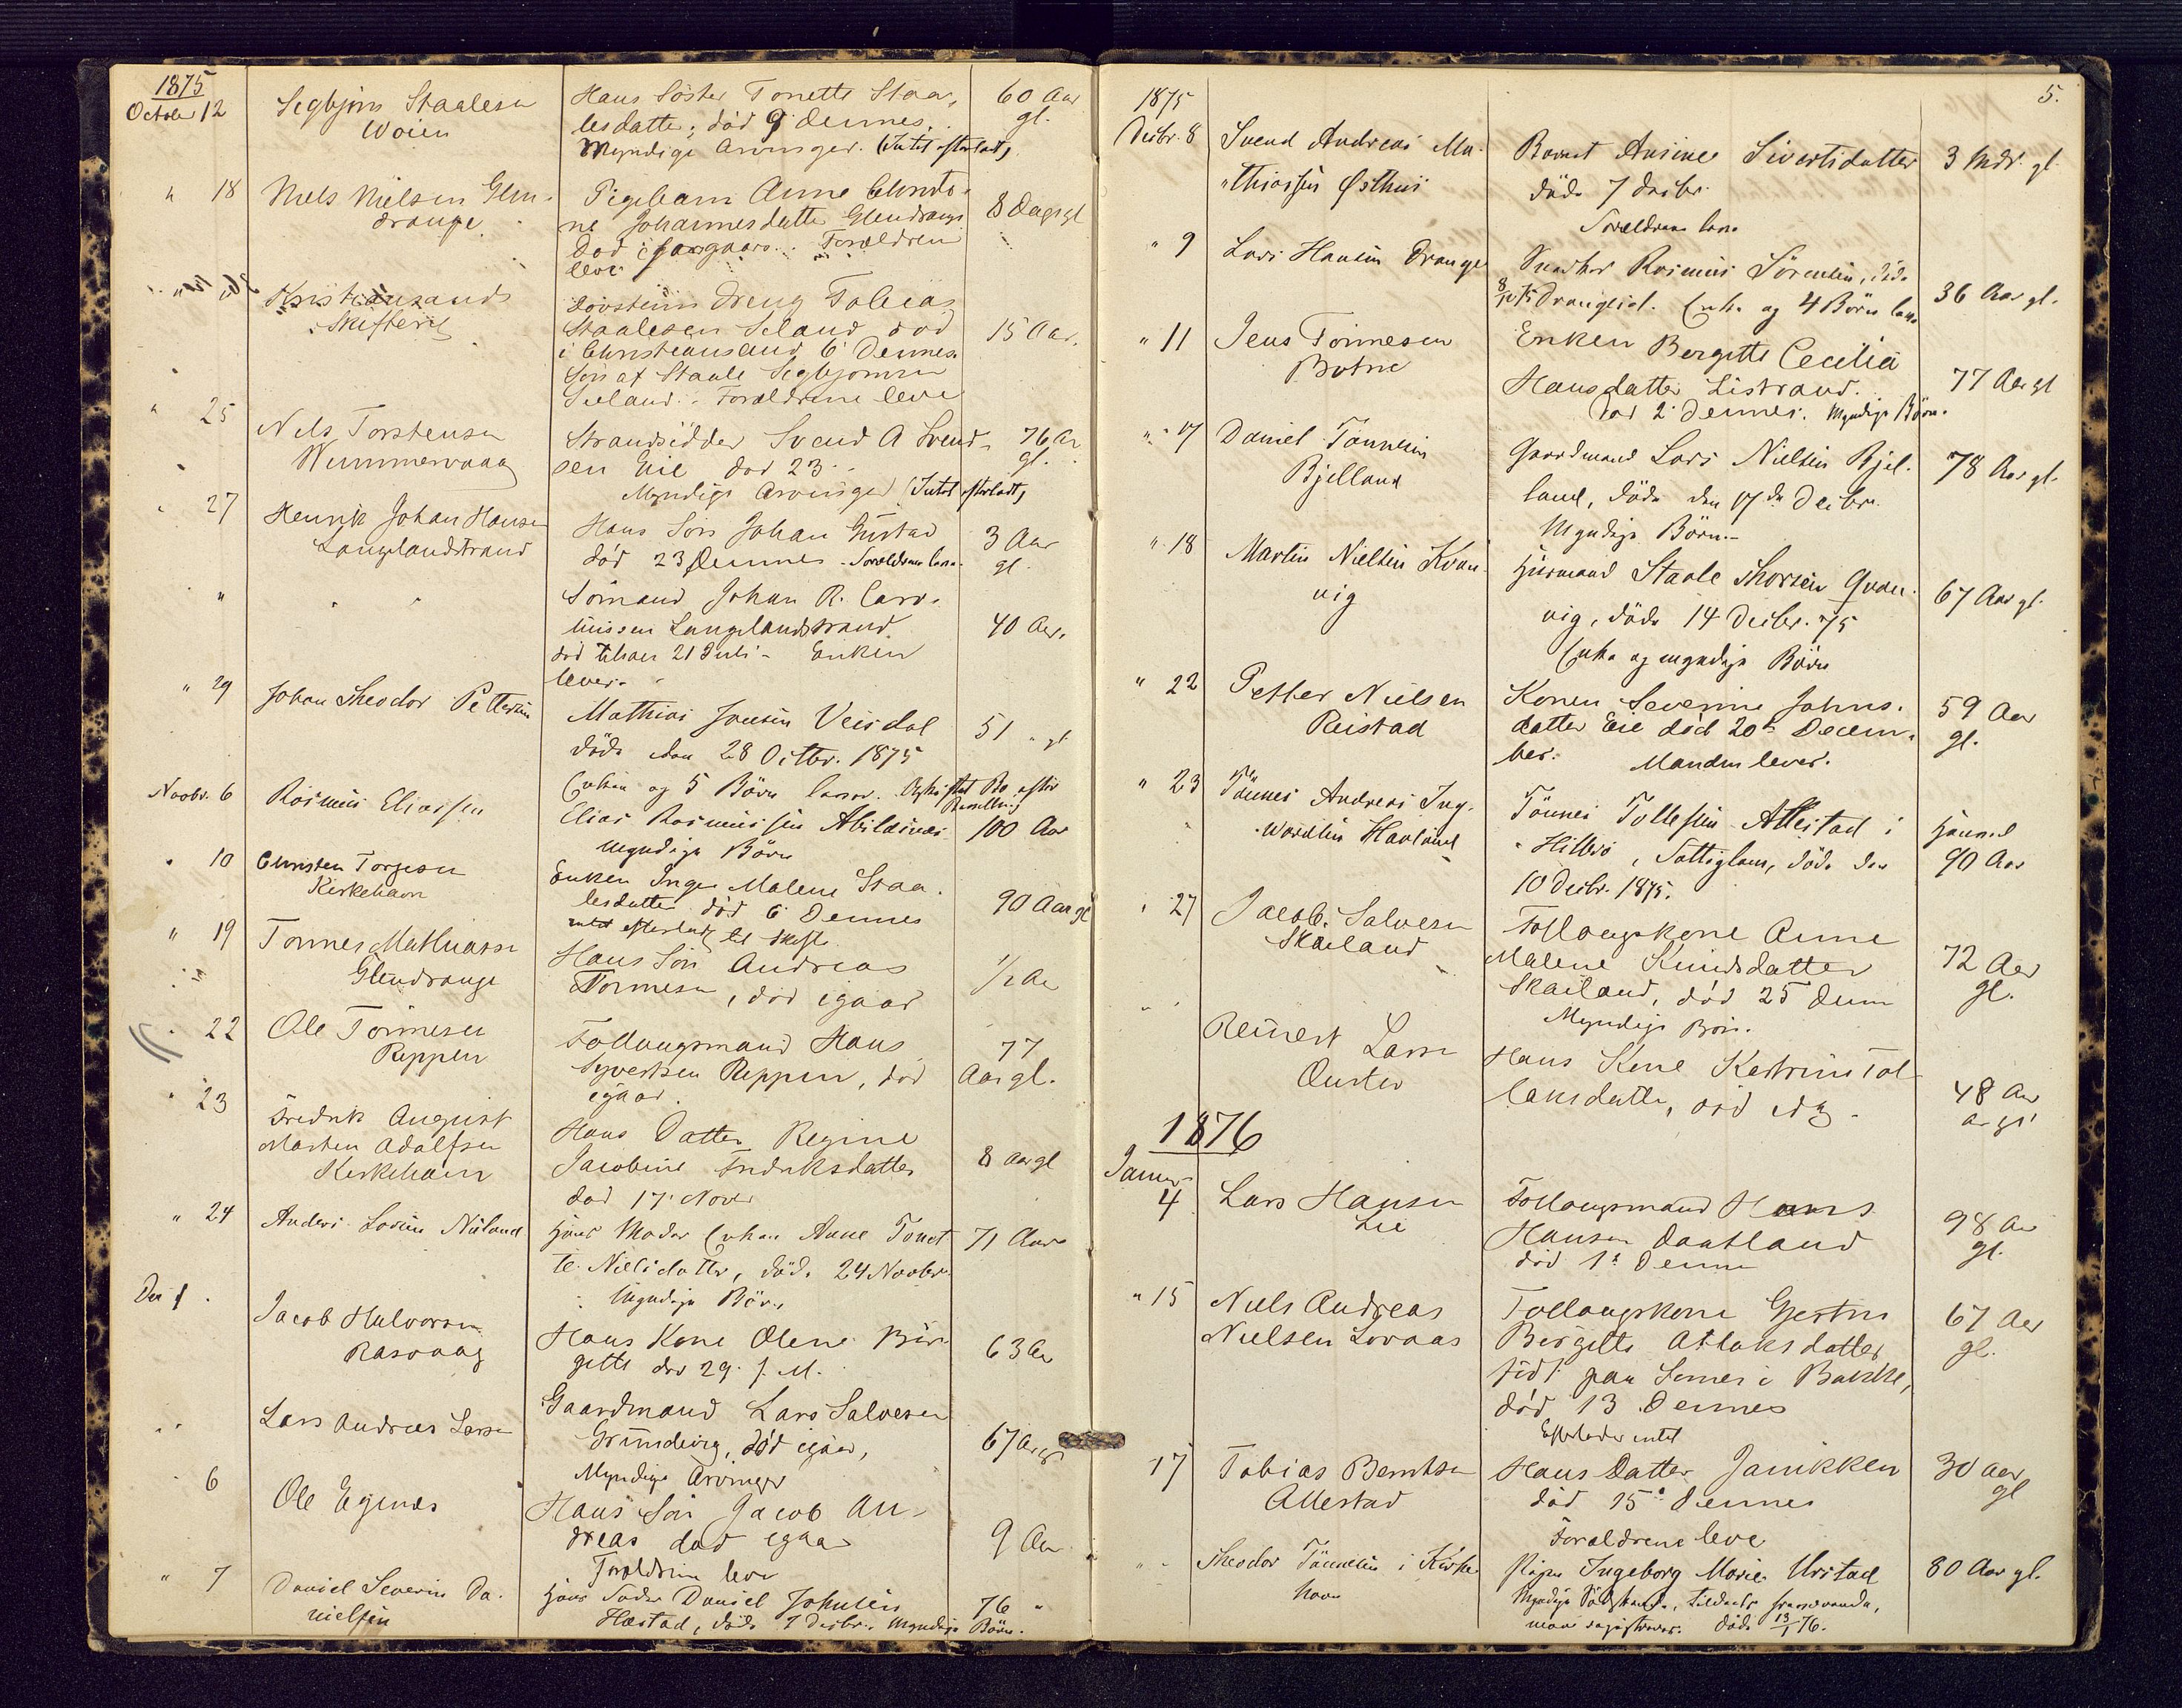 1875
October 12 Segbjørn Staalesen Hans Søster Tonette Staa- 60 Aar
Woien lesdatter, død 9 dennes. gl.
Myndige Arvinger. (Intet efterladt)
" 18 Niels Nielsen Glen- Pigebarn Anne
drange. ne Johannesdatter Glendrange 8 Dage gl
død Forældrene
leve
Kristiansands Dreng Tobias
Skifteret Staalesen Seland død 15 Aar.
i Christiansand 6 Dennes.
Søn af Staale Segbjørnsen
Seland. Forældrene leve
" 25 Nils Torstensen Strandsidder Svend A Svend- 76 Ar
Wummervaag sen Eie død 23 gl.
Myndige Arvinger (Intet efterladt)
" 27 Henrik Johan Hansen Hans Søn Johan Gustav 3 Aar
Langlandstrand død 23 Dennes - Forældrene leve. gl.
" " " Sømand Johan R.
Langlandstrand 40 Aar.
død 21 Juli - Enken
lever.
" 29 Johan Theodor Pettersen Mathias Jensen Veisdal 51 " gl
døde den 28 Octbr. 1875
Enken og 5 Børn lever.
Novbr. 6 Rasmus Eliassen Elias Rasmussen Abildsnes 100 Aar
Myndige Børn
" 10 Christen Torgesen Enken Inger Malene Staa-
Kirkehavn lesdatter død 6 Dennes 90 Aar gl
intet efterladt til Skifte
" 19 Tønnes Mathiassen Hans Søn Andreas ½ Aar
Glendrange Tønnesen, død igaar
" 22 Ole Tønnesen Follaugsmand Hans 77
Reppen Syvertsen Reppen, død Aar gl.
igaar.
" 23 Fredrik August Hans Datter Regine
Morten Adolfsen Jacobine Fredriksdatter 8 aar gl
Kirkehavn død 17 Nov
" 24 Anders Larsen Niland hans Moder Enken Anne Tonet- 71 Aar
te Nielsdatter, døde 24 Novbr.
Myndige Børn
De 1. Jacob Halvorsen Hans Kone Olene Bir-
Rasvaag gitte død 29. f. M. 63 Aar
" " Lars Andreas Larsen Gaardmand Lars Salvesen
Grunderig, død igaar, 67 Aar gl
Myndige Arvinger
" 6 Ole Egenes Hans Søn Jacob An-
dreas død igaar 9 Aar
Forældrene leve
" 7 Daniel Severin Da- hans Fader Daniel Johnsen 76 "
nielsen Hæstad, døde 7 Decbr. Myndige Børn.
5.
1875
Decbr. 8 Svend Andreas Ma- Barnet Ansine Sivertsdatter 3 Mdr. gl
thiassen Østhus døde 7 decbr.
Forældrene leve
" 9 Lars Hansen Drange Rasmus Sørensen, døde
Drangeid. Enke og 4 Børn leve 36 Aar gl.
" 11 Jens Tønnesen Enken Bergitte Cecilia
Botne Hansdatter Listrand. 77 Aar gl
død 2 dennes. Myndige Børn.
" 17 Daniel Tønnesen Gaardmand Lars Nielsen Bjel- 78 Aar gl.
Bjelland land, døde den 17de Decbr.
Myndige Børn.
" 18 Martin Nielsen Kvan- Huusmand Staale Thorsen Qvan- 67 Aar gl.
vig vig, døde 14 Decbr. 75
Enke og myndige Børn
" 22 Petter Nielsen Konen Severine Johns- 59 Aar
Reistad datter Eie død 20de Decem- gl.
ber. Manden lever.
" 23 Tønnes Andreas Ing- Tønnes Tollefsen Allestad i
waldsen Havland Hitterø, Fattiglem, døde den 90 Aar
10 Decbr. 1875.
" 27 Jacob Salvesen Follaugskone Anne
Skailand Malene Knudsdatter 72 Aar
Skailand, død 25 denn gl.
Myndige Børn.
" " Reinert Larsen Hans Kone Katrine Tol-
Ouster laksdatter, død 48 Aar
1876
Januar
4 Lars Hansen Follaugsmand Hans 98 Aar
Lie Hansen Daatland gl.
død 1ste Denne
" 15 Niels Andreas Follaugskone Gjertru 67 Aar
Nielsen Lovaas Birgitte Atlaksdatter gl.
født paa Semes i Bakke,
død 13 Dennes
Efterlader intet
17 Tobias Berntsen Hans Datter Janikken 30 aar
Allestad død 15de dennes gl
Forældrene leve
" " Theodor Tønnesen i Kirke- Pigen Ingeborg Marie Urstad 80 Aar gl.
havn Myndige
døde 13/1 76.